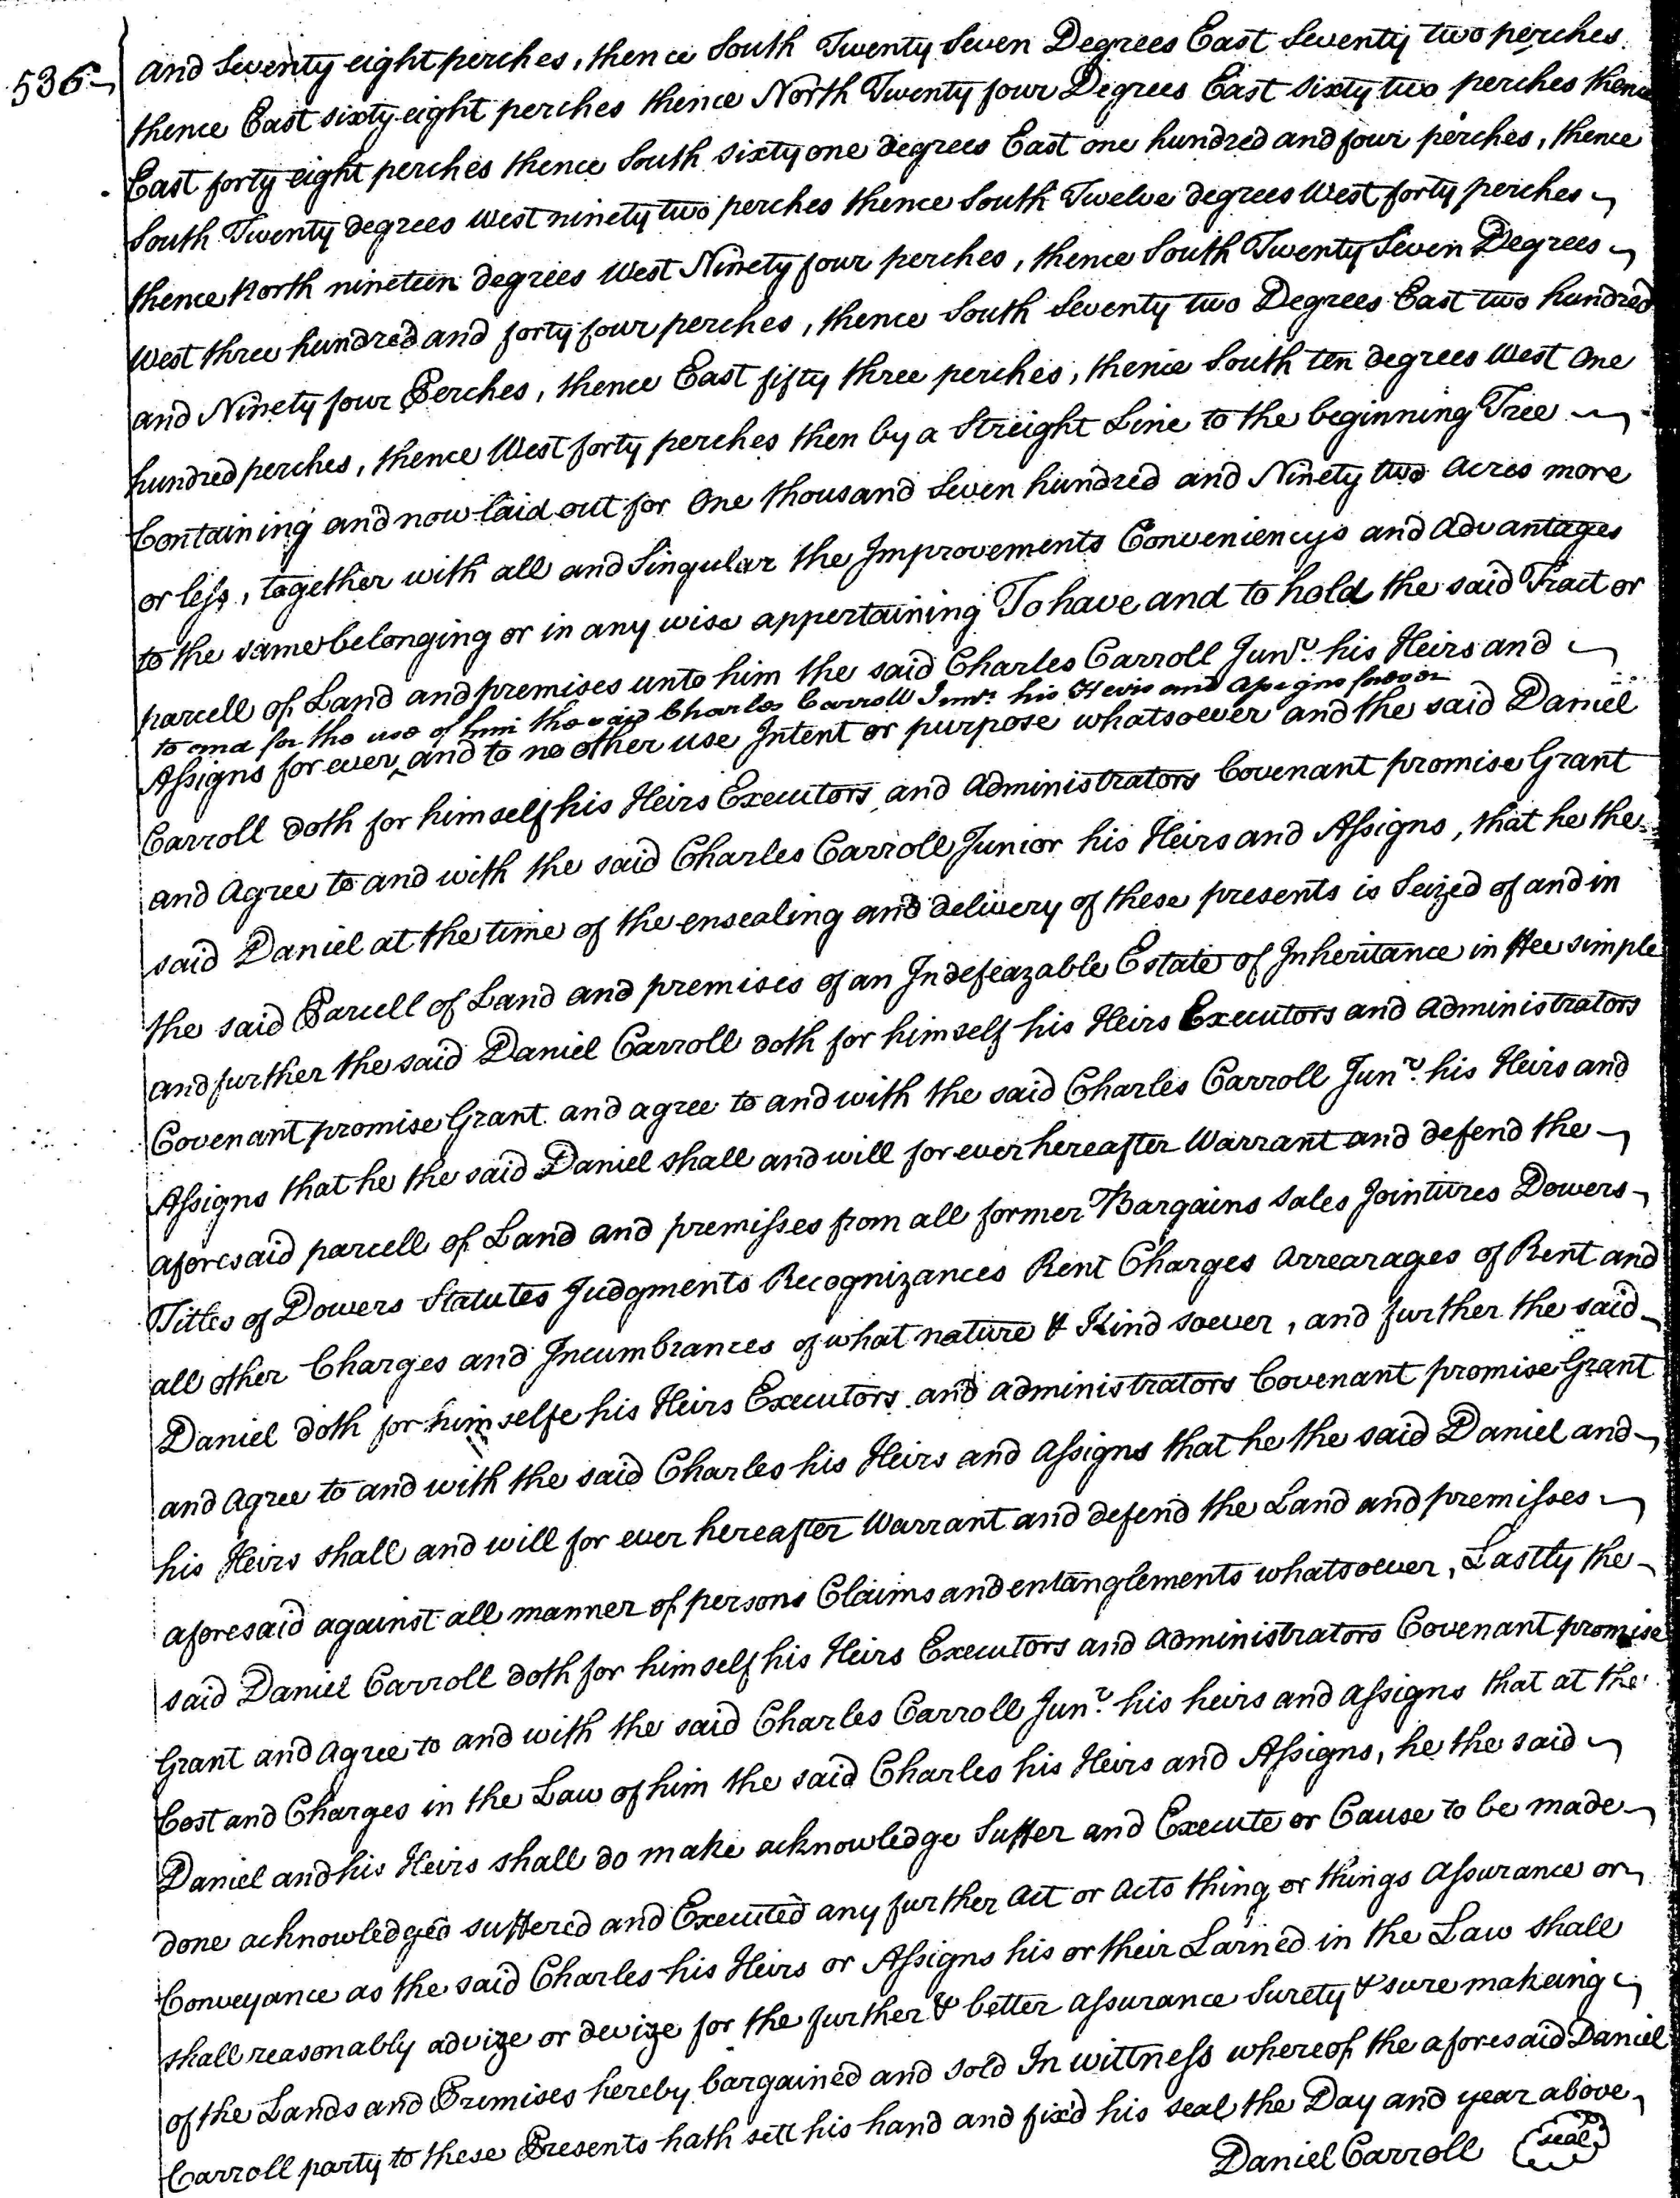 536
and Seventy eight perches, thence South Twenty Seven Degrees East Seventy two perches
thence East sixty eight perches thence North Twenty four Degrees East sixty two perches thence
East forty eight perches thence South sixty one degrees East one hundred and four perches, thence
South Twenty degrees west ninety two perches thence South Twelve degrees West forty perches
thence North nineteen degrees West Ninety four perches, thence South Twenty Seven Degrees
West three hundred and forty four perches, thence South Seventy two Degrees East two hundred
and Ninety four Perches, thence East fifty three perches, thence South ten degrees West One
hundred perches, thence West forty perches then by a Streight Line to the beginning Tree
Containing and now laid out for One thousand Seven hundred and Ninety two Acres more
or less, together with all and Singular the Improvements Conveniencys and Advantages
to the same belonging or in any wise appertaining To have and to hold the said Tract or
parcell of Land and premises unto him the said Charles Carroll Junr. his Heirs and
to and for the use of him the said Charles Carroll Junr. his Heirs and assigns forever
Assigns for ever ‸ and to no other use Intent or purpose whatsoever and the said Daniel
Carroll doth for himself his Heirs Executors and Administrators Covenant promise Grant
and Agree to and with the said Charles Carroll Junior his Heirs and Assigns, that he the
said Daniel at the time of the ensealing and delivery of these presents is Seized of and in
the said Parcell of Land and premises of an Indefeazable Estate of Inheritance in ffee simple
and further the said Daniel Carroll doth for himself his Heirs Executors and Administrators
Covenant promise Grant and agree to and with the said Charles Carroll Junr. his Heirs and
Assigns that he the said Daniel shall and will for ever hereafter Warrant and defend the
aforesaid parcell of Land and premisses from all former Bargains Sales Jointures Dowers
Titles of Dowers Statutes Judgments Recognizances Rent Charges Arrearages of Rent and
all other Charges and Incumbrances of what nature & Kind soever, and further the said
Daniel doth for himselfe his Heirs Executors and administrators Covenant promise Grant
and Agree to and with the said Charles his Heirs and Assigns that he the said Daniel and
his Heirs shall and will for ever hereafter Warrant and defend the Land and premisses
aforesaid against all manner of persons Claims and entanglements whatsoever, Lastly the
said Daniel Carroll doth for himself his Heirs Executors and Administrators Covenant promise
Grant and Agree to and with the said Charles Carroll Junr. his heirs and assigns that at the
Cost and Charges in the Law of him the said Charles his Heirs and Assigns, he the said
Daniel and his Heirs shall do make acknowledge Suffer and Execute or Cause to be made
done acknowledged suffered and Executed any further Act or Acts thing or things Assurance or
Conveyance as the said Charles his Heirs or Assigns his or their Larned in the Law shall
shall reasonably advize or devize for the further & better Assurance Surety & sure makeing
of the Lands and Premises hereby bargained and sold In wittness whereof the aforesaid Daniel
Carroll party to these Presents hath sett his hand and fix'd his seal the Day and year above
Daniel Carroll seal